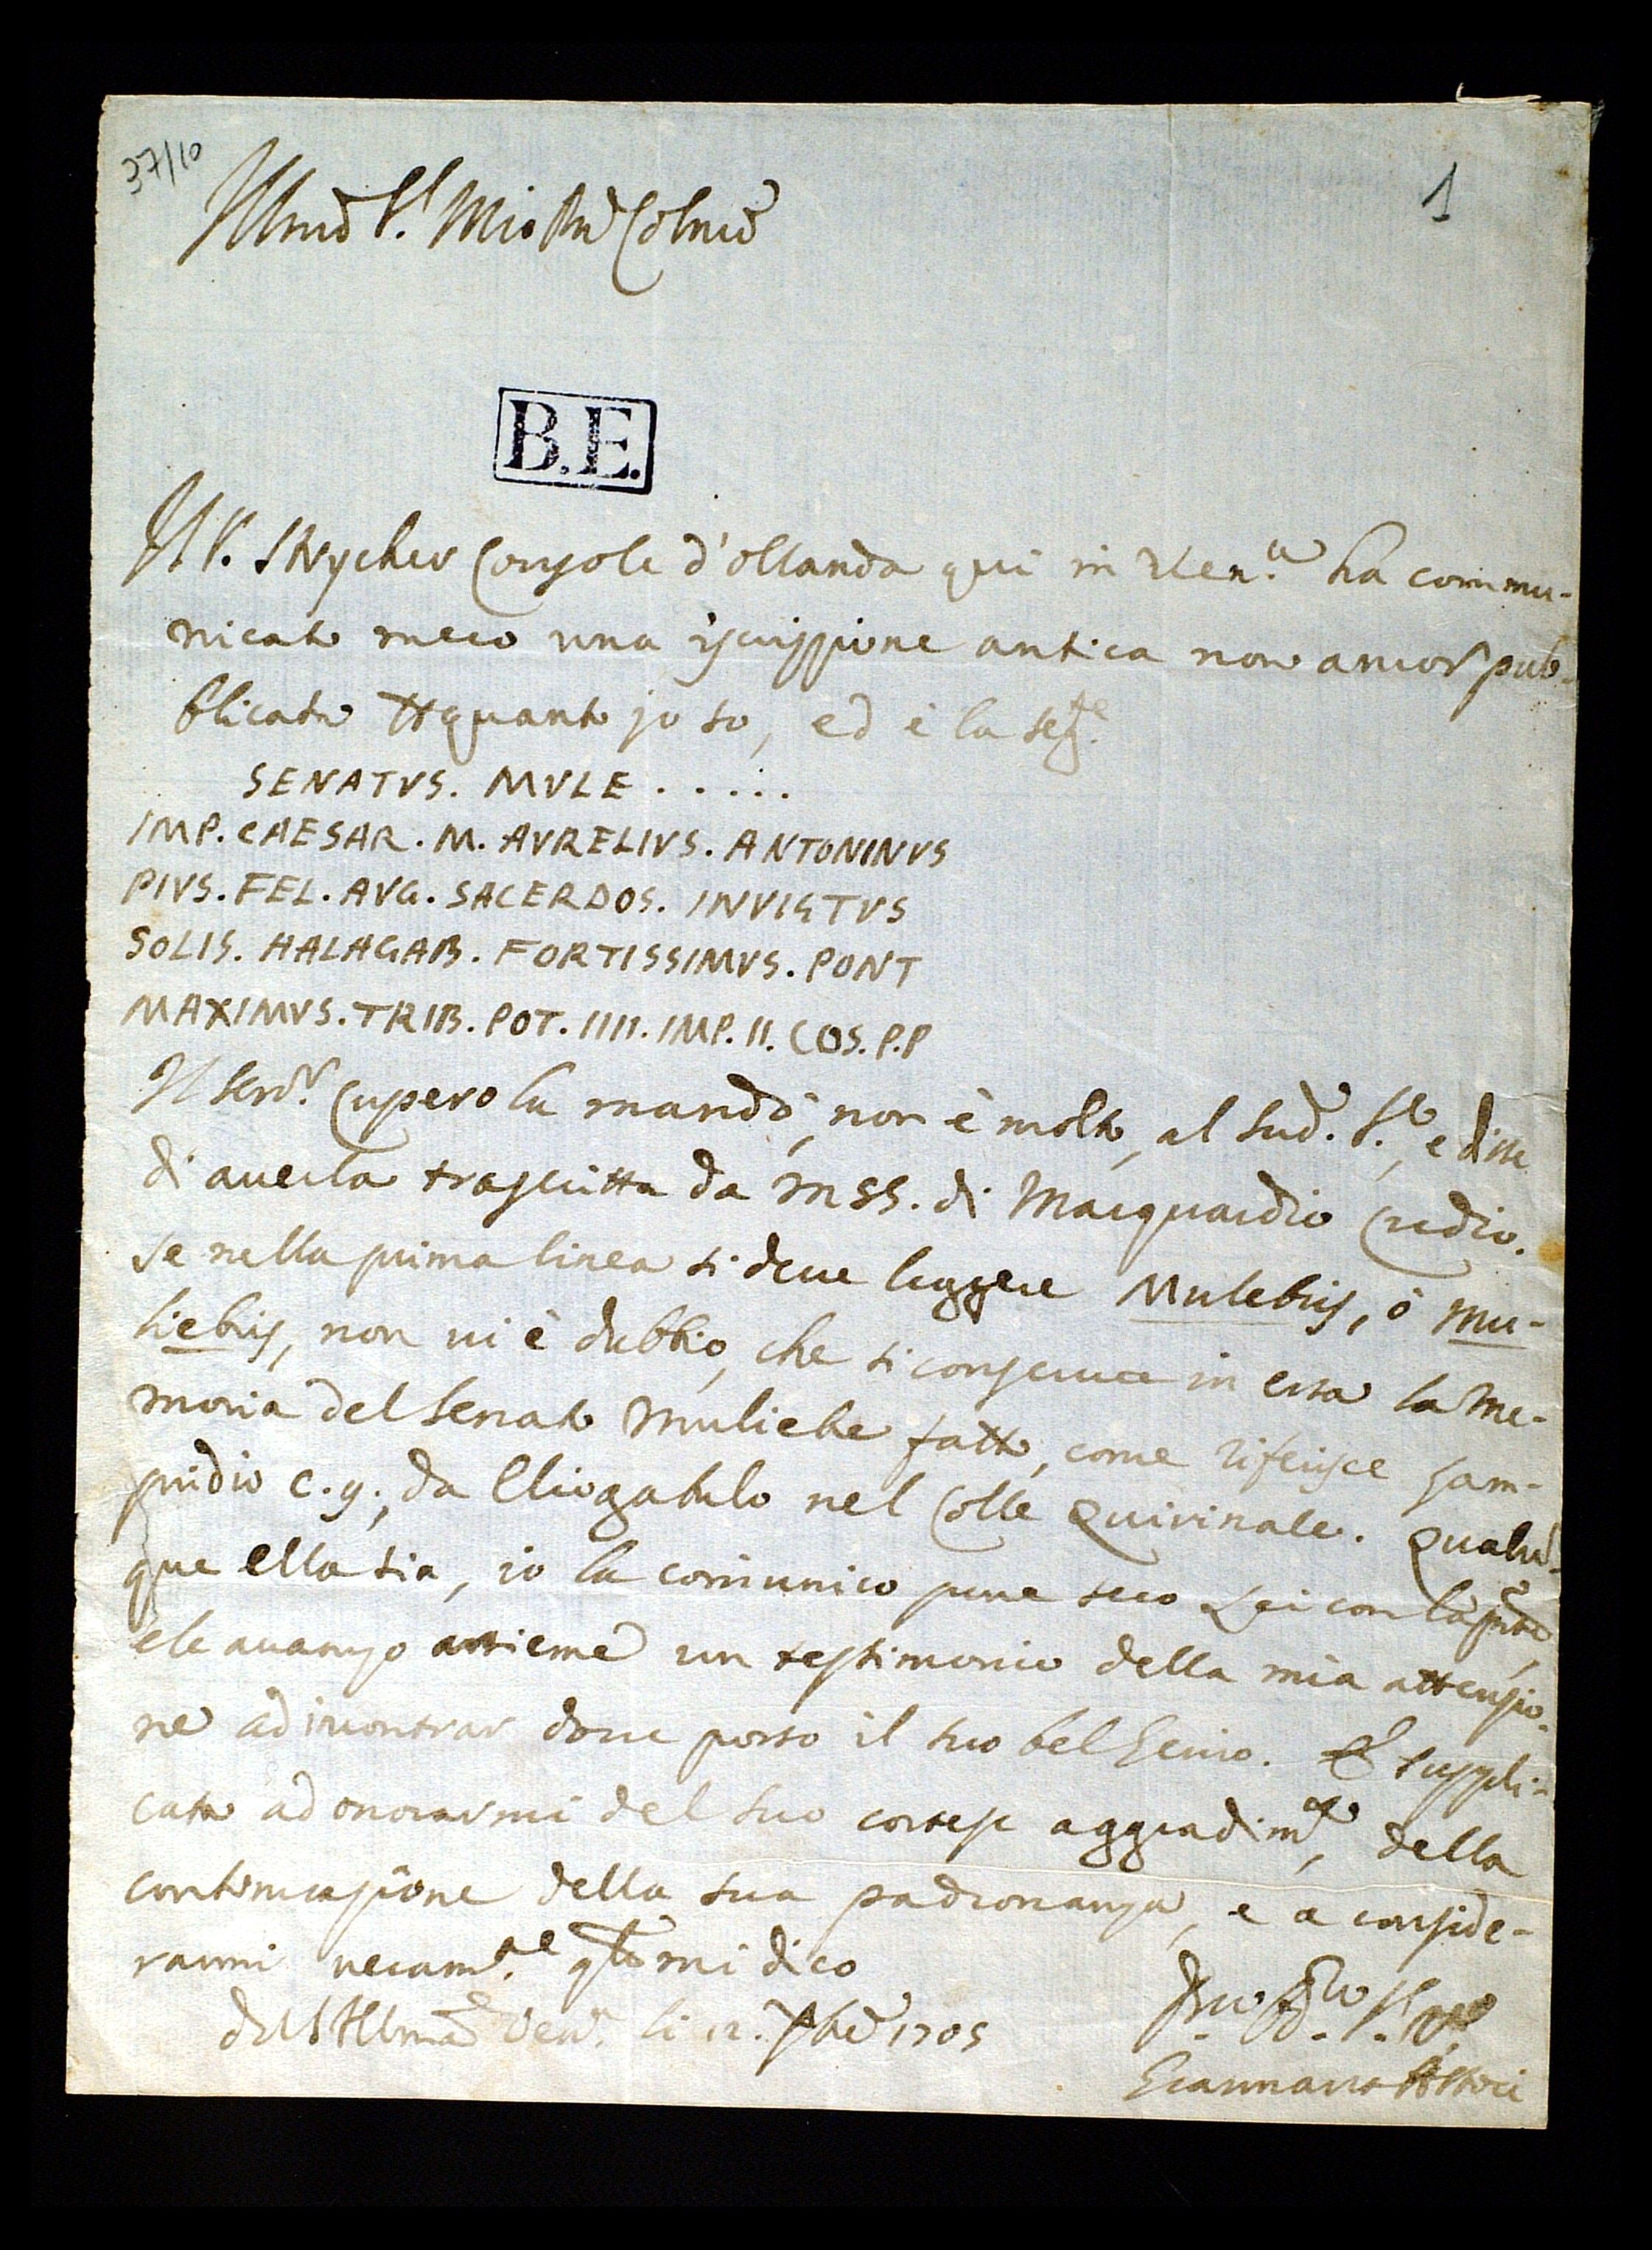 37/10
1
Illmo Sr. Mio Pn Colmo
B.E.
Il S. Strycker Console d'ollanda qui in Ven.a ha commu-
nicato meco una iscrizzione antica non ancor pub-
blicata per quanto jo so, ed è la seg.te
SENATVS. MVLE . . . . .
IMP. CAESAR. M. AVRELIVS. ANTONINVS
PIVS. FEL. AVG. SACERDOS. INVICTVS
SOLIS. HALAGAB. FORTISSIMVS. PONT
MAXIMVS. TRIB. POT. IIII. IMP. II. COS. P.P
Il Senr. Cupero la mandò, non è molto, al sud. Sr., e disse
di averla trascritta da mss. di Marquardio Gudio.
Se nella prima linea si deve leggere Mulebris, ò Mu-
liebris, non vi è dubbio, che si conserva in essa la me-
moria del Senato Muliebre fatto, come riferisce Lam-
pridio c. 4., da Eliogabalo nel Colle Quirinale. Qualun-
que ella sia, io la comunico pure seco Lei con la pnte
e le avanzo assieme un testimonio della mia attenzio-
ne ad incontrar dove posso il suo bel Genio. E suppli-
cata ad onorarmi del suo cortese aggradim.to, della
continuazione della sua padronanza, e a conside-
rarmi veram.te qto mi dico
Di VS Illma Ven.a li 12. 7bre 1705
Giannanto Astori